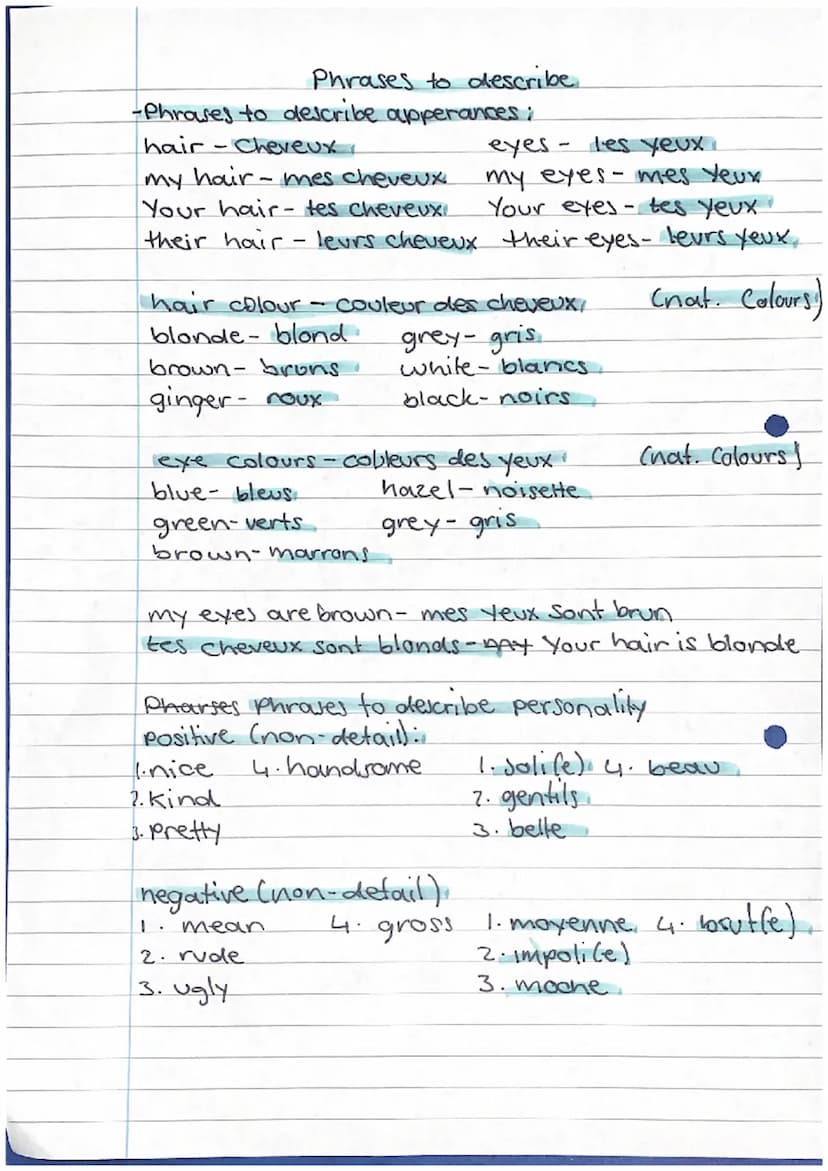 Phrases to describe
-Phrases to describe apperances:
hair - Cheveux eyes - les yeux
my hair - mes cheveux my eyes - mes yeux
Your hair - tes cheveux Your eyes - tes yeux
their hair - leurs cheveux their eyes - leurs yeux
hair colour - couleur des cheveux (nat. Colours)
blonde - blond grey - gris
brown - bruns white - blancs
ginger - roux black - noirs
eye colours - cobleurs des yeux (nat. Colours)
blue - bleus hazel - noisette
green - verts grey - gris
brown - marrons
my eyes are brown - mes yeux sont brun
tes cheveux sont blonds - Your hair is blonde
Pharses Phrases to describe personality
positive (non-detail):
1. nice 4. handsome 1. Joli(e) 4. beau
2. Kind 2. gentils
3. Pretty 3. belle
negative (non-detail)
1. mean 4. gross 1. moyenne 4. brut(e)
2. rude 2. impoli(e)
3. ugly 3. moche